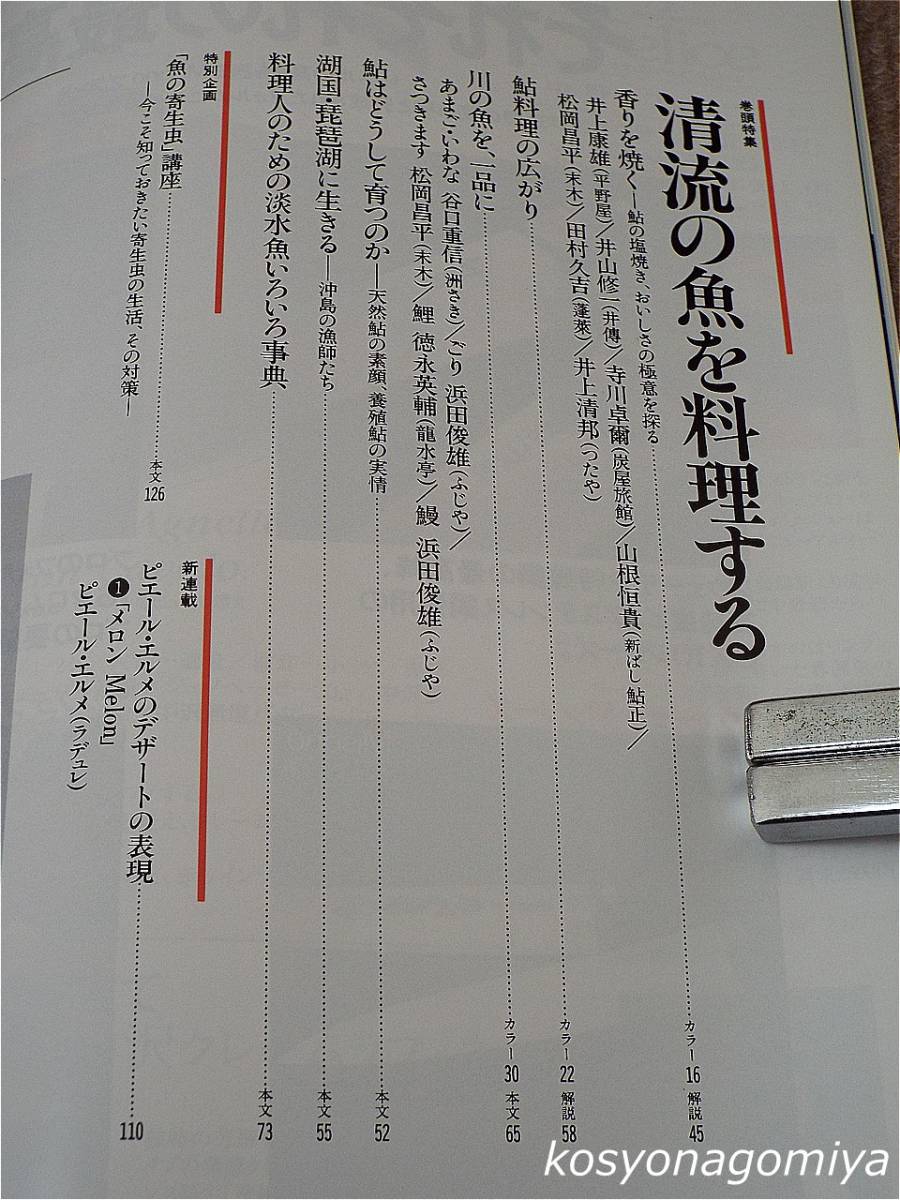 巻頭特集
清流の魚を料理する
香りを焼く—鮎の塩焼き、おいしさの極意を探る カラー16 解説45
井上康雄(平野屋)/井山修一(井傳)/寺川卓爾(炭屋旅館)/山根恒貴(新ばし 鮎正)/
松岡昌平(末木)/田村久吉(蓬莱)/井上清邦(つたや)
鮎料理の広がり カラー22 解説58
川の魚を、一品に カラー30 本文65
あまご・いわな 谷口重信(洲さき)/ごり 浜田俊雄(ふじや)/
さつきます 松岡昌平(末木)/鯉 徳永英輔(龍水亭)/鰻 浜田俊雄(ふじや)
鮎はどうして育つのか—天然鮎の素顔、養殖鮎の実情 本文52
湖国・琵琶湖に生きる—沖島の漁師たち 本文55
料理人のための淡水魚いろいろ事典 本文73
特別企画
「魚の寄生虫」講座 本文126
—今こそ知っておきたい寄生虫の生活、その対策—
新連載
ピエール・エルメのデザートの表現 110
❶「メロン Melon」
ピエール・エルメ(ラデュレ)
kosyonagomiya